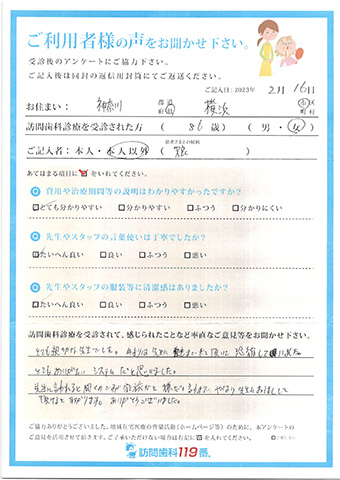 ご利用者様の声をお聞かせ下さい。
受診後のアンケートにご協力下さい。
ご記入後は同封の返信用封筒にてご返送ください。
ご記入日：2023年 2月 16日
お住まい： 神奈川 都道府県 横浜 市区町村
訪問歯科診療を受診された方 ( 86 歳) ( 男・女 )
患者さまとの続柄
ご記入者：本人・本人以外 ( 娘 )
あてはまる項目に☑をいれてください。
Q 費用や治療期間等の説明はわかりやすかったですか？
☑とても分かりやすい □分かりやすい □ふつう □分かりにくい
Q 先生やスタッフの言葉使いは丁寧でしたか？
☑たいへん良い □良い □ふつう □悪い
Q 先生やスタッフの服装等に清潔感はありましたか？
☑たいへん良い □良い □ふつう □悪い
訪問歯科診療を受診されて、感じられたことなど率直なご意見等をお聞かせ下さい。
とても親切な先生でした。
とてもありがたい システム だと思いました。
ありがとうございました。
ご協力ありがとうございました。地域在宅医療の啓発活動（ホームページ等）のために、本アンケートの
ご意見を活用させて頂きます。ご了承いただけない場合は右記に☑を入れてください。
訪問歯科119番。